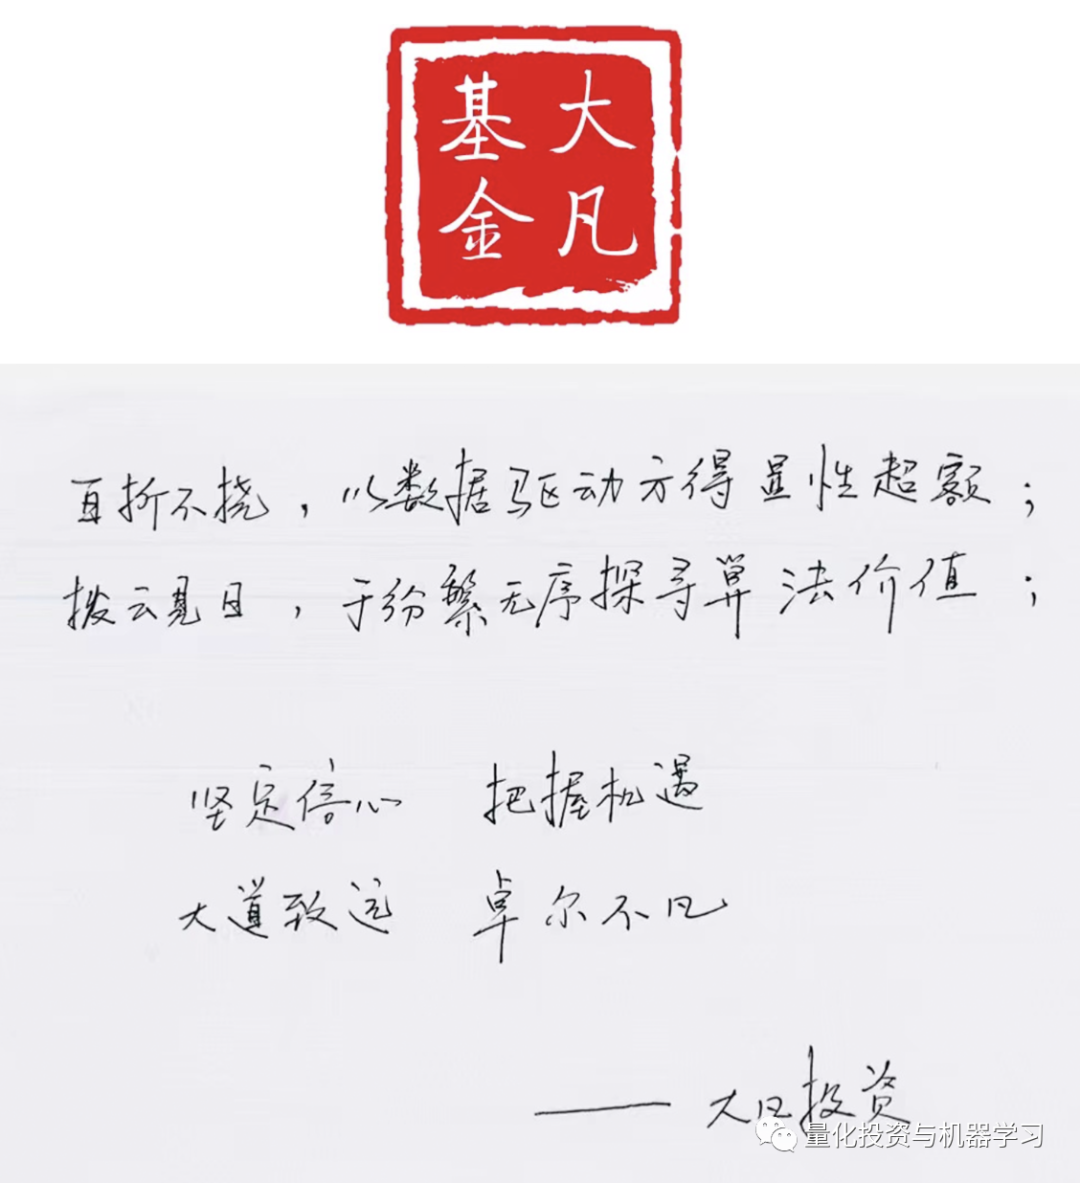 大凡
基金
百折不挠，以数据驱动方得显性超额；
拨云见日，于纷繁无序探寻算法价值；
坚定信心 把握机遇
大道致远 卓尔不凡
——大凡投资
量化投资与机器学习